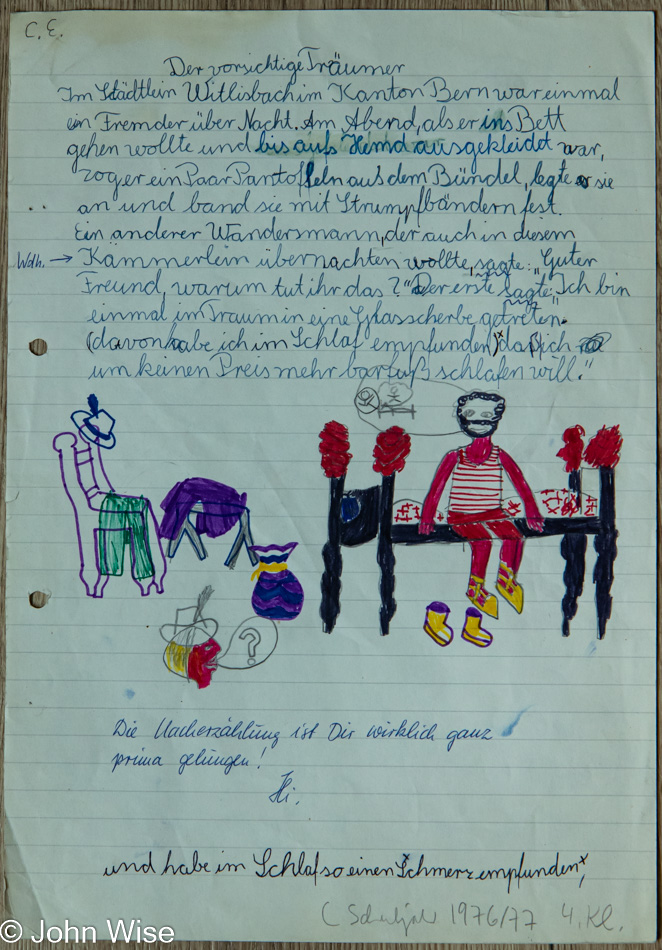 C. E.
Der vorsichtige Träumer
Im Städtlein Witlisbach im Kanton Bern war einmal
ein Fremder über Nacht. Am Abend, als er ins Bett
gehen wollte und bis aufs Hemd ausgekleidet war,
zog er ein Paar Pantoffeln aus dem Bündel, legte sie
an und band sie mit Strumpfbändern fest.
Ein anderer Wandersmann, der auch in diesem
Wdh. → Kämmerlein übernachten wollte, sagte: „Guter
Freund, warum tut ihr das?" Der erste sagte: „Ich bin
einmal im Traum in eine Glasscherbe getreten.
(davon habe ich im Schlaf empfunden)x daß ich
um keinen Preis mehr barfuß schlafen will."
?
Die Nacherzählung ist Dir wirklich ganz
prima gelungen!
Hi.
und habe im Schlaf so einen Schmerz empfunden x,
(Schuljahr 1976/77 4. Kl.
© John Wise